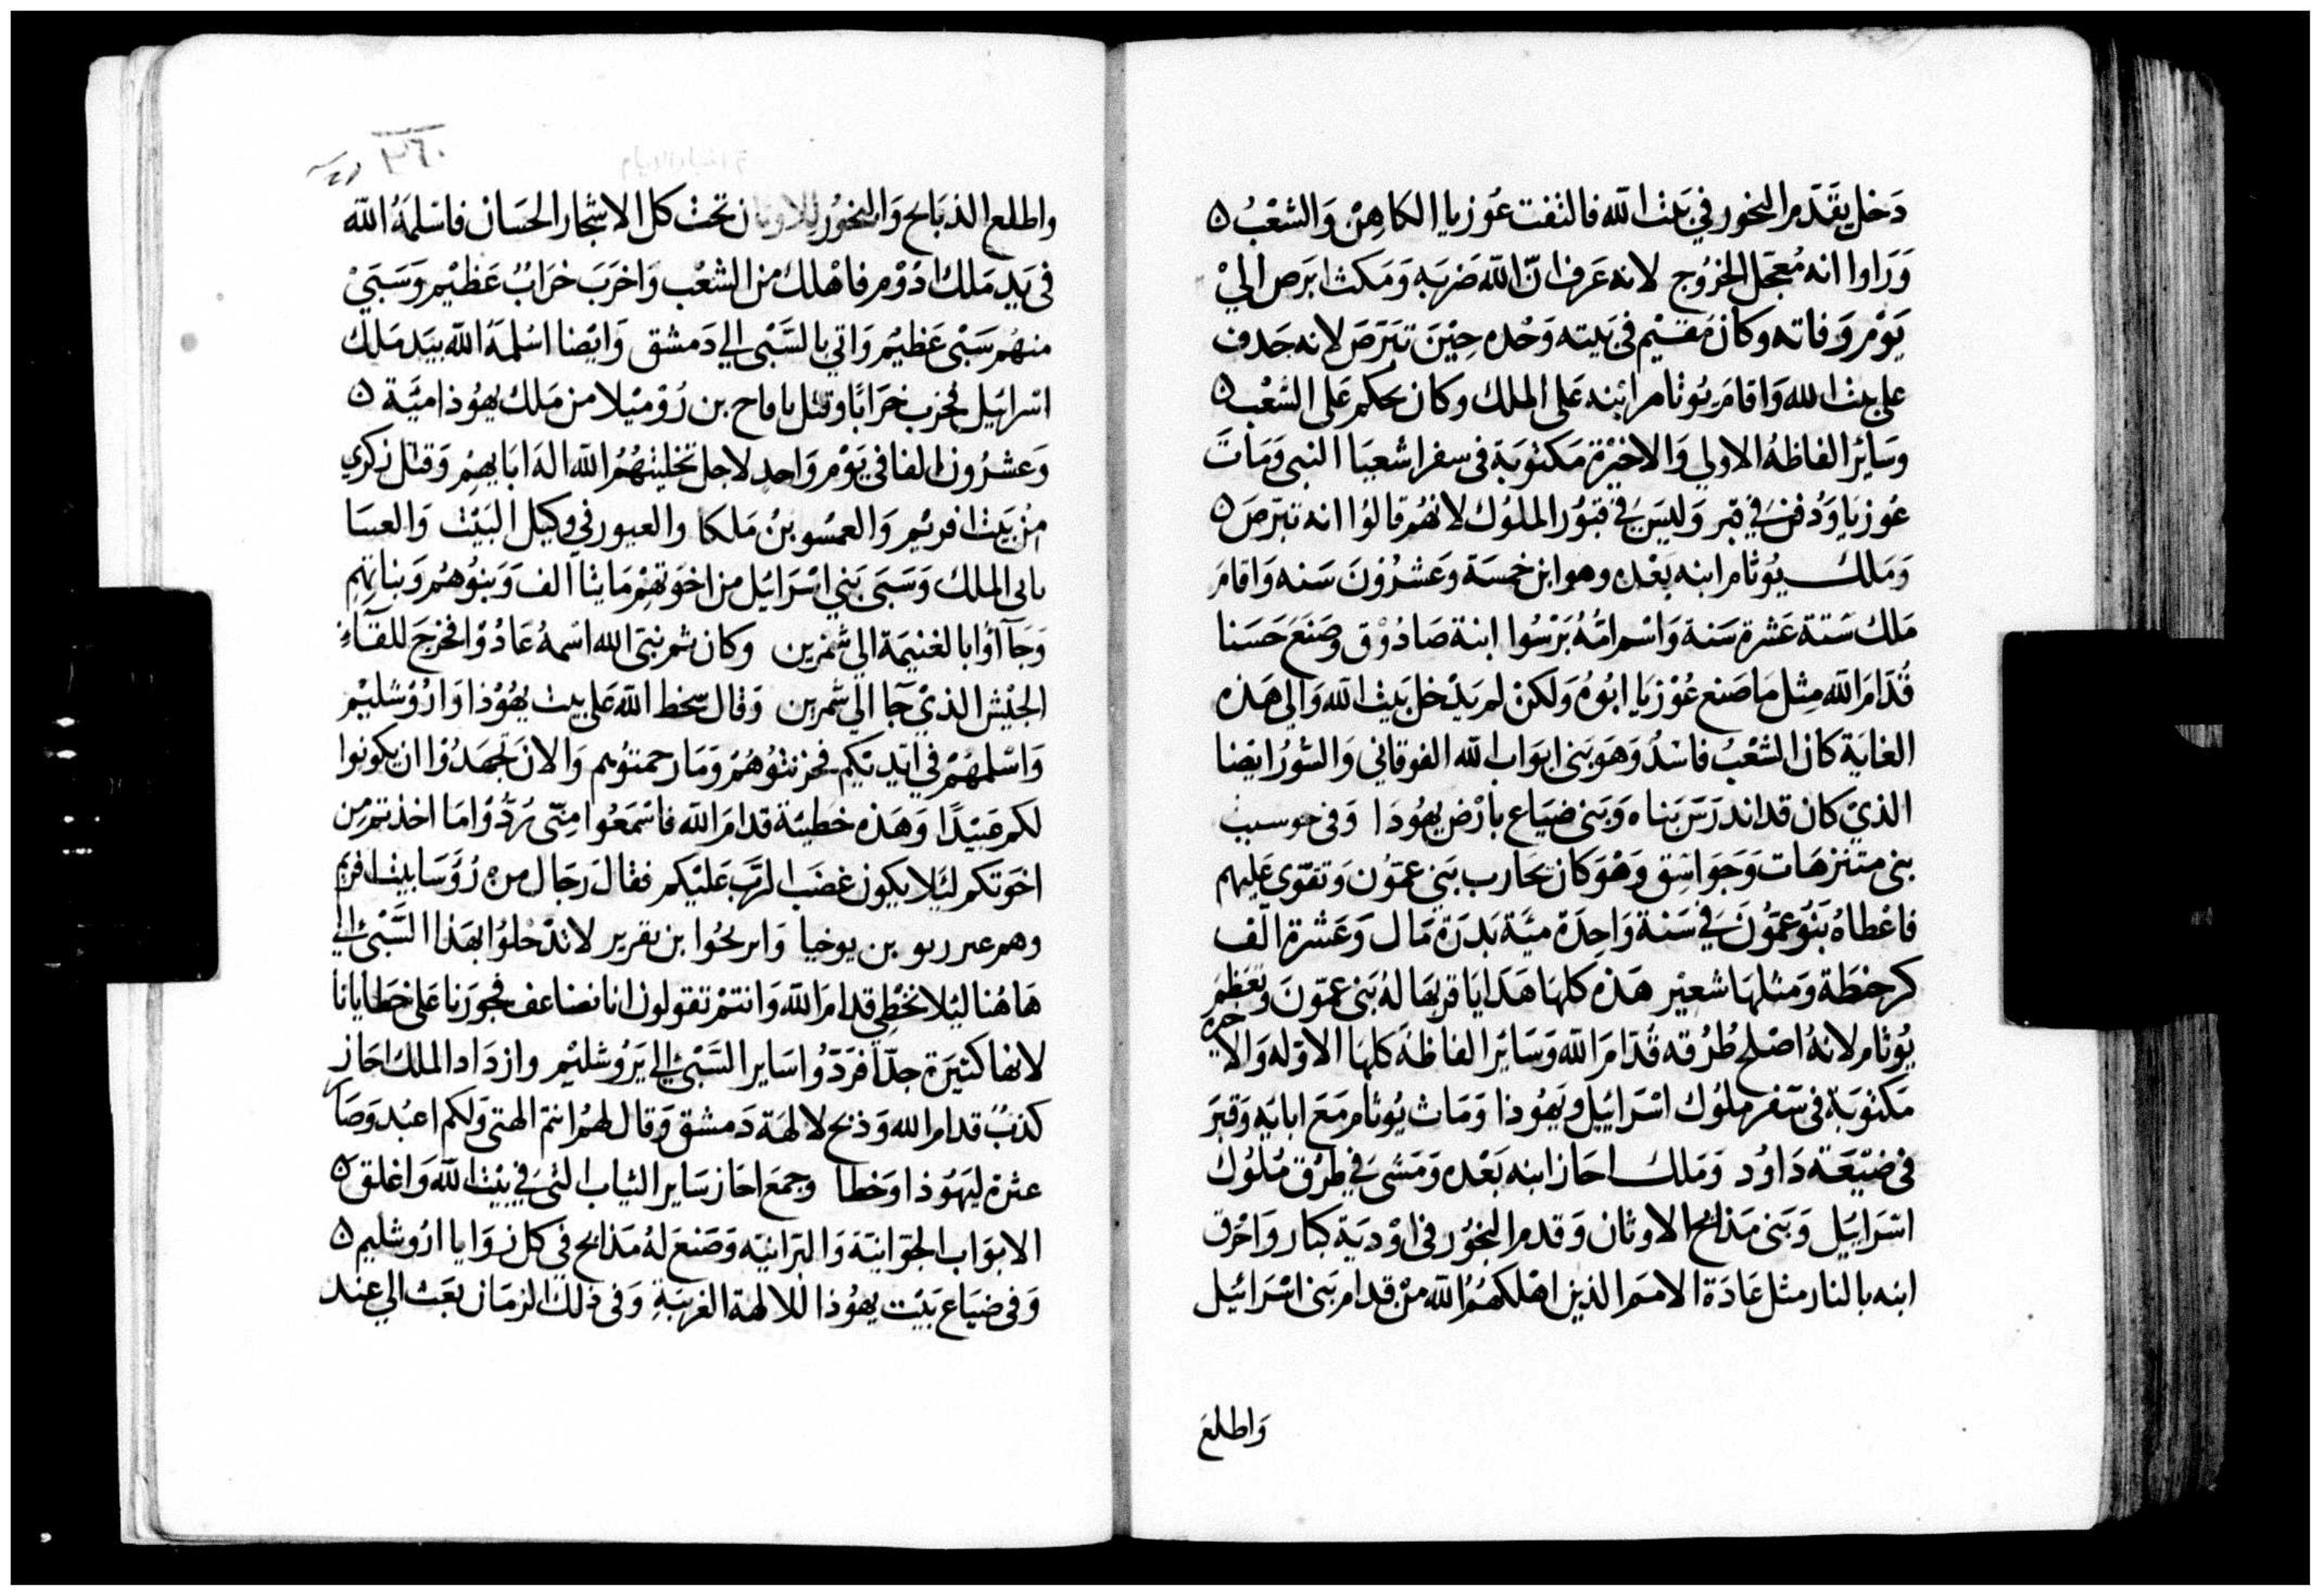 دَخل يقَدّم البخور في بَيث الله فالتفت عُوزيا الكاهِنْ وَالشعْبُ ٥
وَرَاوا انه مُعجَّل الخرُوج لانه عَرف انّ الله ضَربَه وَمَكث ابَرص اليْ
يَوْم وَفاته وكانْ مُقيْم في بَيته وَحْده حِيْنَ تبَرَصَ لانه جَدف
علي بيث الله وَاقامَ يوثام ابْنه عَلى الملك وكان يحكم عَلى الشعْب ٥
وسَائر الفاظهُ الاولي وَالاخيْرة مَكتوبَة في سفر اشعيَا النبى وَمَاتَ
عُوزيَا وَدُفن في قبر وَليسَ في قبوُر الملوُك لانهُم قالوُا انه تبَرّصَ ٥
وَمَلكَ يوُثام ابنه بَعْده وهو ابن خمسَة وعَشرُونَ سَنه وَاقامَ
مَلك سَتة عَشرة سَنة وَاسْم امّهُ بَرْسُوا ابنة صَادُوْق وصَنعَ حَسَنا
قُدّامَ الله مِثل مَا صَنع عُوْزيَا ابُوهُ وَلكنْ لم يَدْخل بَيث الله وَالي هَذه
الغايَة كان الشعْبُ فاسْدُ وَهوَ بَنى ابوَاب الله الفوقاني وَالسُّورُ ايضا
الذيْ كان قد اندرَسَ بَناه وَبَنى ضيَاع بأرْض يهُودَا وَفى حوسب
بنى متنزهَات وَجَوَاسِق وَهْوَ كان يحَارب بَني عمّوُن وَتقوّي عَليهم
فاعْطاهُ بَنوُ عمّوُنَ في سَنة وَاحِدَة ميَّة بَدرَة مَال وَعَشرة الَف
كر حنطَة وَمثلهَا شعيْر هَذه كلهَا هَدَايَا قربهَا لهُ بَنى عمّونَ وتعَظمَ
يوُثام لانهُ اصْلح طرُقه قُدّامَ الله وَسَائرَ الفاظهُ كلهَا الاوّله وَالاخره
مَكتوُبَة فى سَفر ملوُك اسْرَائيل ويَهُوذا وَمَاث يوُثام مَعَ ابايَه وَقبرَ
فى ضيْعَة دَاوُد وَمَلك احَاز ابنه بَعْده وَمَشىَ في طرْق مُلوُك
اسْرَائيل وَبَنى مَذابح الاوثان وَقدم البخوُر في اوْديَة كبار وَاحْرق
ابنه بالنار مثل عَادَة الامَم الذين اهْلكهُمُ الله منْ قدام بَنى اسْرَائيل
وَاطلعَ
٣٦٠
واطلع الذبَائح وَالبخوُر للاوثان تحت كل الاشجار الحسَان فاسْلمَهُ الله
فى يَد مَلك ادُوْم فاهْلك من الشعْب وَاخرَبَ خرَابُ عَظيْم وَسَبَيْ
منهُم سَبْى عَظيْم وَاتي بالسَّبْى الي دَمشق وَايْضا اسْلمَهُ الله بيَد مَلك
اسْرائيل فخرب خرَابًا وقتل باقاح بن رُوْميْلا من مَلك يهُوذا ميَّة ٥
وَعشرُون الفا في يَوْم وَاحد لاجل تخليتهُمُ الله الهَ ابَايهمْ وَقتل زكري
منْ بَيْث افريْم وَالعمْسو بنْ مَلكا والعيور في وكيل البَيْت وَالعسَا
باى الملك وَسَبَى بَني اسْرَائيل من اخوَتهُمْ مَايتا الف وَبَنوُهُم وَبناتهِم
وَجَآأوُا بالغنيمَة الي شمْرين وكان ثم نبيّ الله اسْمهُ عَادُوْا فخرَجَ للقآء
الجيْش الذيْ جَا الي شمْرين وَقال سخط الله عَلي بيت يهُوْذا وَارُوْشليْم
وَاسْلمهُمْ في ايَديْكم فحزنتوُهُمْ وَمَا رحمتوُهم وَالان تجهَدُوْا ان يكونوا
لكم عَبيْدًا وَهَذه خطيّة قدامَ الله فاسْمَعُوا منّى رُدُّوْا مَا اخذتمْ من
اخوَتكم لئَلا يكون غضَب الرَّب عَليْكم فقالَ رجَال من رُؤسَا بيْث افريم
وهم عىرربو بن يوخيا وَابرىحُوا بن ىقرير لا تدْخلوُا بهَذا السَّبْى الي
هَاهُنا لئلا نخطِي قدامَ الله وَانتمْ تقولون انا نضاعف فجورَنا عَلى خطَايانا
لانها كثيرَة جدّا فرَدّوُا سَاير السَّبْى الي يَروُشليْم وازدَاد الملك احَاز
كذبُ قدام الله وَذبح لالهَة دَمشق وَقال لهُم انتم الهتى وَلكم اعبُد وَصَار
عثرة ليهوُذا وَخطا وجمعَ احَاز سَاير الثياب التيَ في بيْت الله وَاغلق ٥
الابوَاب الجوّانيّة وَالبرانيّه وَصَنعَ لهُ مَذابح في كل زوَايا ارُوشليم ٥
وَفي ضيَاع بَيْت يهُوذا للالهة الغريبَةِ وَفى ذلك الزمَان بعَث الي عند